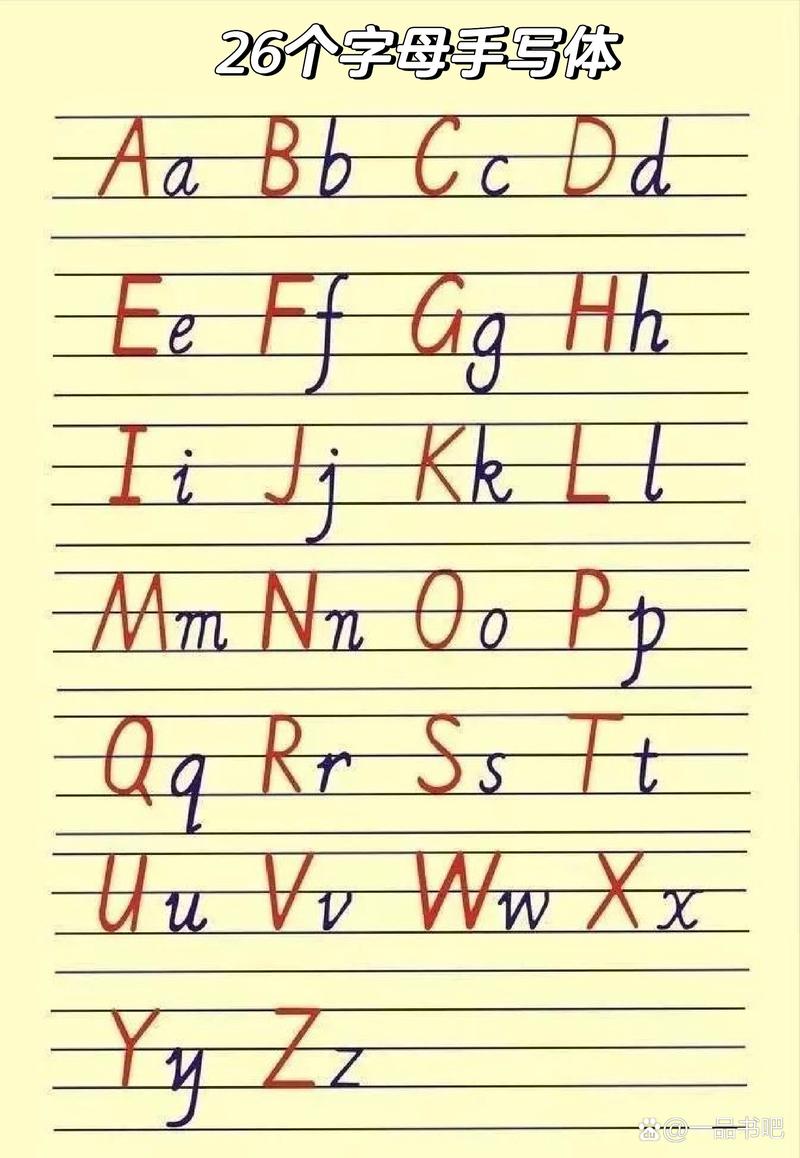 26个字母手写体
Aa Bb Cc Dd
Ee Ff Gg Hh
Ii Jj Kk Ll
Mm Nn Oo Pp
Qq Rr Ss Tt
Uu Vv Ww Xx
Yy Zz
@一品书吧